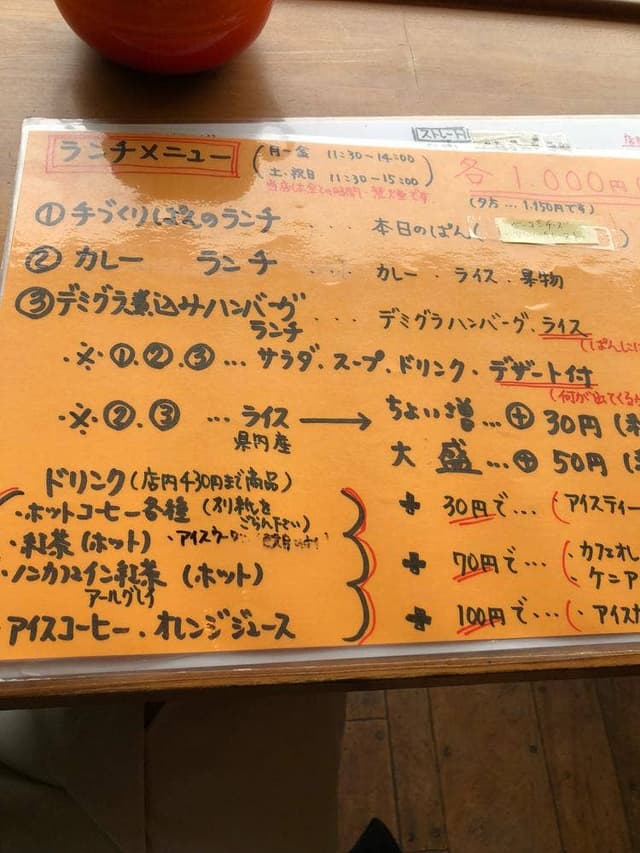 ストレート
ランチメニュー (月〜金 11:30〜14:00) 各 1.000円
(土・祝日 11:30〜15:00)
(夕方…1.150円です)
①手づくりぱんのランチ … 本日のぱん( )
②カレー ランチ … カレー・ライス・果物
③デミグラ煮込みハンバーグ
ランチ … デミグラハンバーグ・ライス
※①.②.③… サラダ.スープ.ドリンク・デザート付
※②.③ … ライス → ちょい増…⊕30円
県内産
大 盛…⊕50円
ドリンク(店内430円まで商品)
・ホットコーヒー各種 (別紙を
ごらん下さい) + 30円で…(アイスティー
・紅茶(ホット)
・ノンカフェイン紅茶 (ホット) + 70円で…(・カフェオレ
アールグレイ ・ケニア
アイスコーヒー・オレンジジュース + 100円で…(・アイス